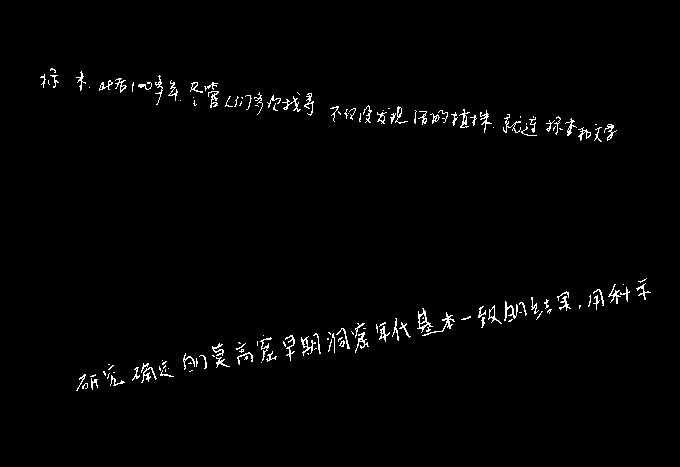 标本,此后100多年,尽管人们多次找寻,不仅没发现活的植株,就连标本和文字
研究确定的莫高窟早期洞窟年代基本一致的结果,用科采